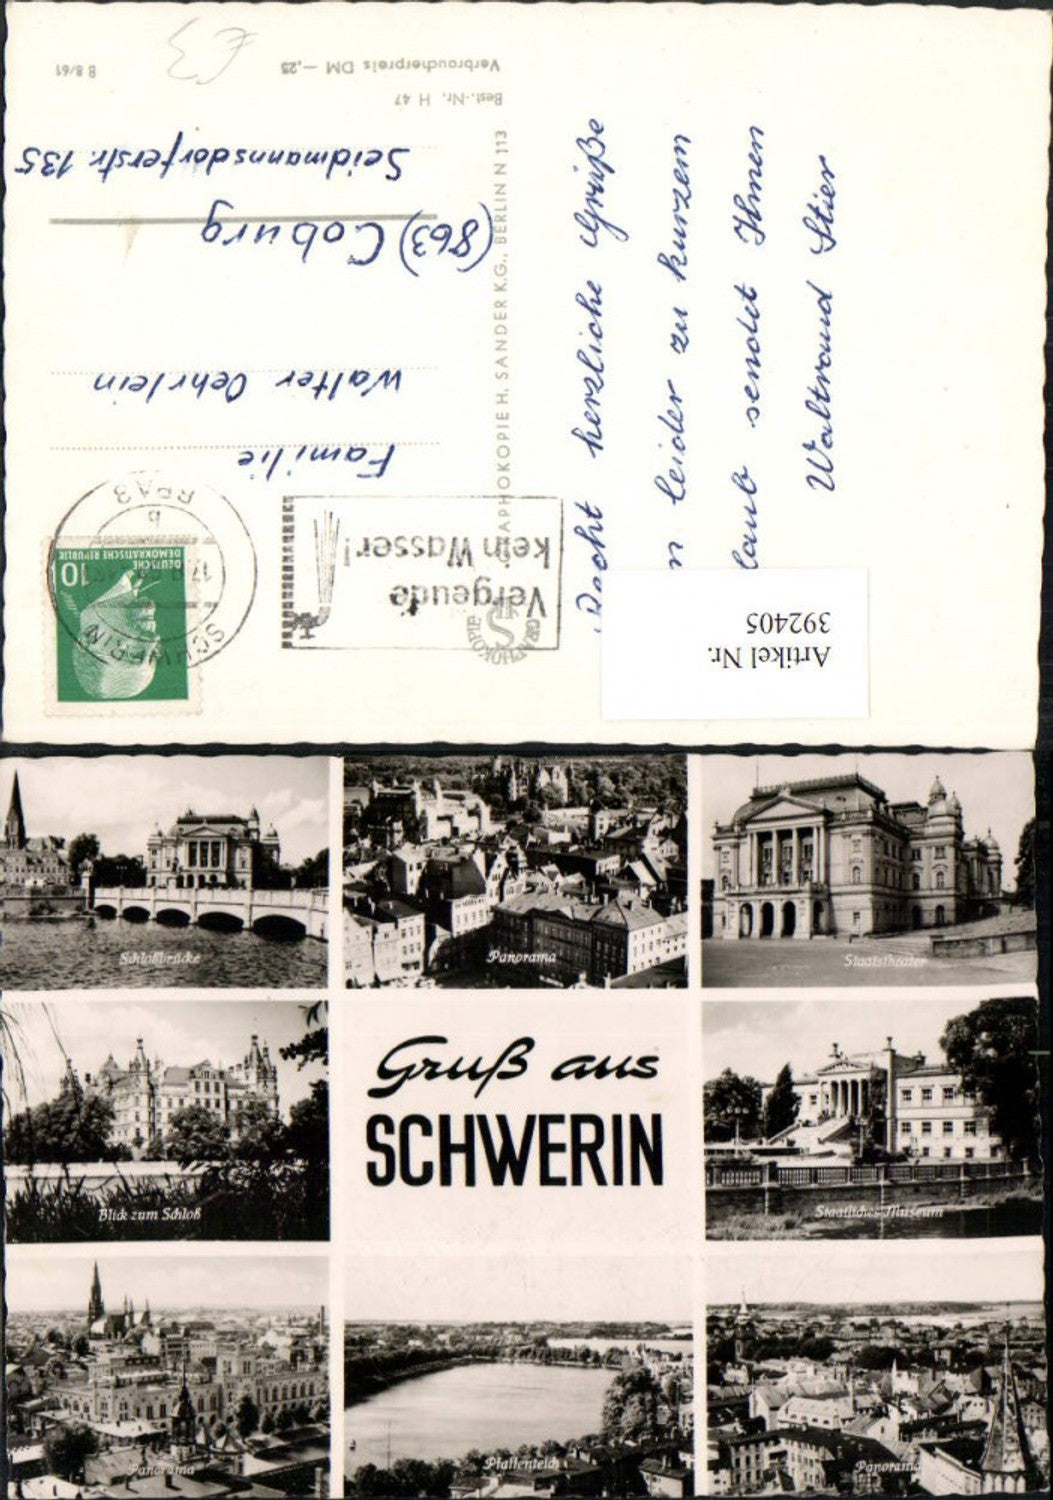 €3
B 8/61
Verbraucherpreis DM —,25
Best.-Nr. H 47
GRAPHOKOPIE H. SANDER K.G., BERLIN N 113
Familie
Walter Oehrlein
(863) Coburg
Seidmannsdorferstr. 135
SCHWERIN
17.
b
BPA3
DEUTSCHE
DEMOKRATISCHE REPUBLIK
10
Vergeude
kein Wasser!
GRAPHOKOPIE
HS
Recht herzliche Grüße
leider zu kurzem
laub sendet Ihnen
Waltraud Stier
Artikel Nr.
392405
Schloßbrücke
Panorama
Staatstheater
Blick zum Schloß
Gruß aus
SCHWERIN
Staatliches Museum
Panorama
Pfaffenteich
Panorama